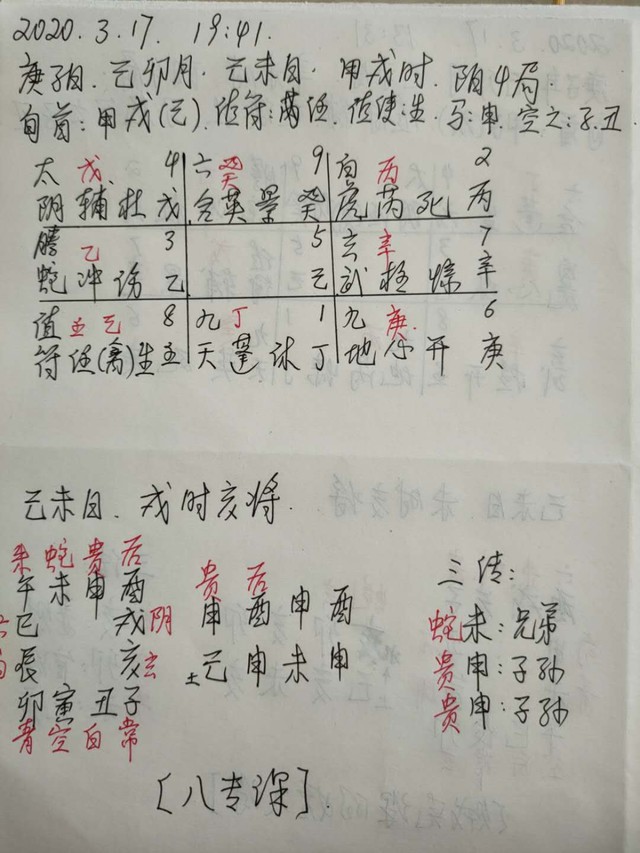 2020.3.17. 19:41.
庚子日. 己卯月. 己未日. 甲戌时. 阴4局.
旬首:甲戌(己). 值符:蓠任. 值使:生. 马:申. 空亡:子.丑
太 戊 4 六 癸 9 白 丙 2
阴 辅 杜 戊 合 英 景 癸 虎 芮 死 丙
腾 乙 3 5 玄 辛 7
蛇 冲 伤 乙 己 武 柱 惊 辛
值 壬 己 8 九 丁 1 九 庚 6
符 任(禽)生 壬 天 蓬 休 丁 地 心 开 庚
己未日. 戌时亥将.
朱 蛇 贵 后
午 未 申 酉
巳 戌 阴
辰 亥 玄
卯 寅 丑 子
青 空 白 常
贵 后
申 酉 申 酉
土己 申 未 申
三传:
蛇未:兄弟
贵申:子孙
贵申:子孙
[八专课].